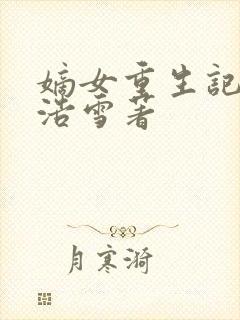 嫡女重生記
浩雪著
月寒漪